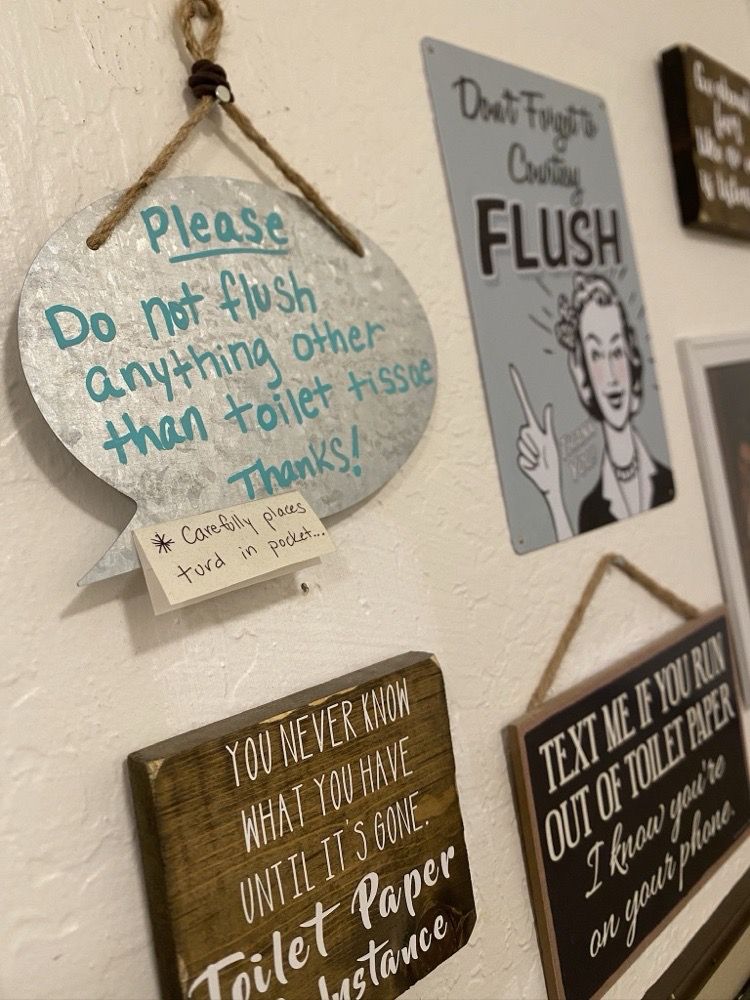 Please
Do not flush
anything other
than toilet tissue
Thanks!
* Carefully places
turd in pocket...
Don't Forget to
Courtesy
FLUSH
THANK
YOU
YOU NEVER KNOW
WHAT YOU HAVE
UNTIL IT'S GONE.
Toilet Paper
Instance
TEXT ME IF YOU RUN
OUT OF TOILET PAPER
I know you're
on your phone.